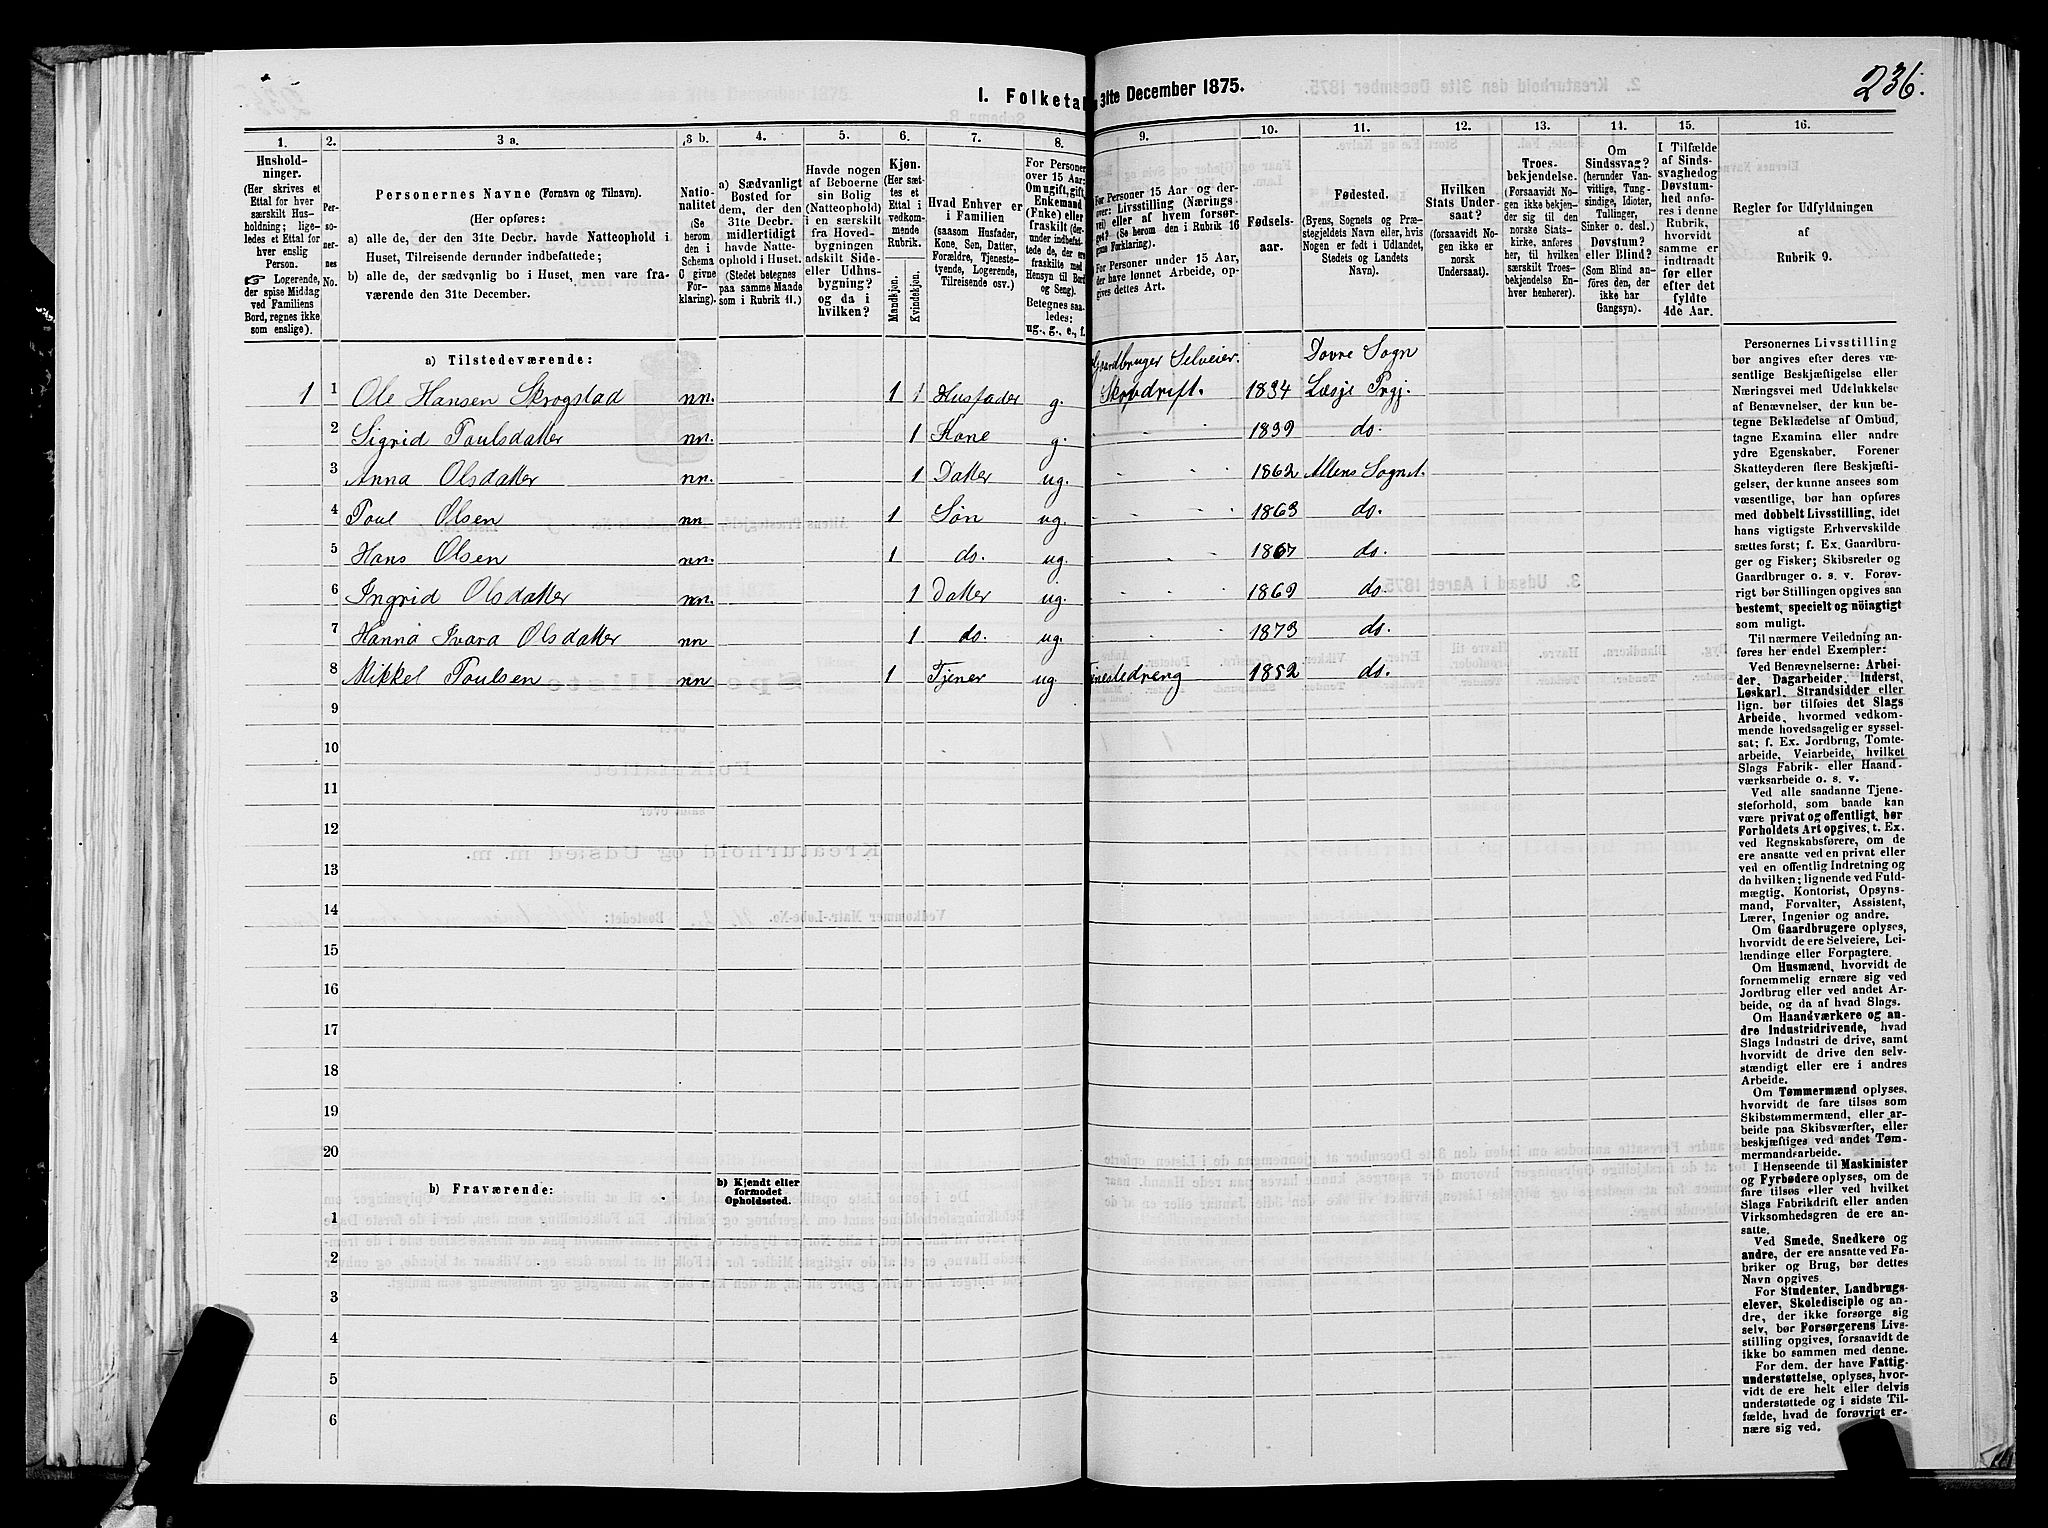 I. Folketal
31te December 1875.
236.
1.
2.
3 a.
3 b.
4.
5.
6.
7.
8.
9.
10.
11.
12.
13.
14.
15.
16.
Hushold-
ninger.
(Her skrives et
Ettal for hver
særskilt Hus-
holdning; lige-
ledes et Ettal for
hver enslig
Person.
☞ Logerende,
der spise Middag
ved Familiens
Bord, regnes ikke
som enslige).
Per-
so-
ner-
nes
No.
Personernes Navne (Fornavn og Tilnavn).
(Her opføres:
a) alle de, der den 31te Decbr. havde Natteophold i
Huset, Tilreisende derunder indbefattede;
b) alle de, der sædvanlig bo i Huset, men vare fra-
værende den 31te December.
Natio-
nalitet
(Se
herom
den i
Schema
C givne
For-
klaring).
a) Sædvanligt
Bosted for
dem, der den
31te Decbr.
midlertidigt
havde Natte-
ophold i Huset.
(Stedet betegnes
paa samme Maade
som i Rubrik 11.)
Havde nogen
af Beboerne
sin Bolig
(Natteophold)
i en særskilt
fra Hoved-
bygningen
adskilt Side-
eller Udhus-
bygning?
og da i
hvilken?
Kjøn.
(Her sæt-
tes et
Ettal i
vedkom-
mende
Rubrik.
Mandkjøn.
Kvindekjøn.
Hvad Enhver er
i Familien
(saasom Husfader,
Kone, Søn, Datter,
Forældre, Tjeneste-
tyende, Logerende,
Tilreisende osv.)
For Personer
over 15 Aar:
Om ugift, gift,
Enkemand
(Enke) eller
fraskilt (der-
under indbefat-
tede de, der ere
fraskilte med
Hensyn til Bord
og Seng).
Betegnes saa-
ledes:
ug., g., e., f.
For Personer 15 Aar og der-
over: Livsstilling (Nærings-
vei) eller af hvem forsør-
get? (Se herom i Rubrik 16
givne Forklaring).
For Personer under 15 Aar,
der have lønnet Arbeide, op-
gives dettes Art.
Fødsels-
aar.
Fødested.
(Byens, Sognets og Præ-
stegjeldets Navn eller, hvis
Nogen er født i Udlandet,
Stedets og Landets
Navn).
Hvilken
Stats Under-
saat?
(forsaavidt No-
gen ikke er
norsk
Undersaat).
Troes-
bekjendelse.
(Forsaavidt No-
gen ikke bekjen-
der sig til den
norske Stats-
kirke, anføres
her, til hvilken
særskilt Troes-
bekjendelse En-
hver henhører).
Om
Sindssvag?
(herunder Van-
vittige, Tung-
sindige, Idioter,
Tullinger,
Sinker o. desl.)
Døvstum?
eller Blind?
(Som Blind an-
føres den, der
ikke har
Gangsyn).
I Tilfælde
af Sinds-
svaghed og
Døvstum-
hed anfø-
res i denne
Rubrik,
hvorvidt
samme er
indtraadt
før eller
efter det
fyldte
4de Aar.
Regler for Udfyldningen
af
Rubrik 9.
a) Tilstedeværende:
Gaardbruger Selveier. Dovre Sogn
1 1 Ole Hansen Skrogstad nn. 1 1 Husfader g. Skovdrift. 1834 Læsje Prgj.
2 Sigrid Poulsdatter nn. 1 Kone g. 1839 do.
3 Anna Olsdatter nn. 1 Datter ug. 1862 Altens Sogn
4 Poul Olsen nn 1 Søn ug. 1863 do.
5 Hans Olsen nn. 1 do. ug. 1867 do.
6 Ingrid Olsdatter nn. 1 Datter ug. 1869 do.
7 Hanna Ivara Olsdatter nn 1 do. ug. 1873 do.
8 Mikkel Poulsen nn 1 Tjener ug Tjenestedreng 1852 do.
9
10
11
12
13
14
15
16
17
18
19
20
b) Fraværende:
b) Kjendt eller
formodet
Opholdssted.
1
2
3
4
5
6
Personernes Livsstilling
bør angives efter deres væ-
sentlige Beskjæftigelse eller
Næringsvei med Udelukkelse
af Benævnelser, der kun be-
tegne Beklædelse af Ombud,
tagne Examina eller andre
ydre Egenskaber. Forener
Skatteyderen flere Beskjæfti-
gelser, der kunne ansees som
væsentlige, bør han opføres
med dobbelt Livsstilling, idet
hans vigtigste Erhvervskilde
sættes først; f. Ex. Gaardbru-
ger og Fisker; Skibsreder og
Gaardbruger o. s. v. Forøv-
rigt bør Stillingen opgives saa
bestemt, specielt og nöiagtigt
som muligt.
Til nærmere Veiledning an-
føres her endel Exempler:
Ved Benævnelserne: Arbei-
der, Dagarbeider, Inderst,
Løskarl, Strandsidder eller
lign. bør tilføies det Slags
Arbeide, hvormed vedkom-
mende hovedsagelig er syssel-
sat; f. Ex. Jordbrug, Tomte-
arbeide, Veiarbeide, hvilket
Slags Fabrik- eller Haand-
værksarbeide o. s. v.
Ved alle saadanne Tjene-
steforhold, som baade kan
være privat og offentligt, bør
Forholdets Art opgives, t. Ex.
ved Regnskabsførere, om de
ere ansatte ved en privat eller
ved en offentlig Indretning og
da hvilken; lignende ved Fuld-
mægtig, Kontorist, Opsyns-
mand, Forvalter, Assistent,
Lærer, Ingeniør og andre.
Om Gaardbrugere oplyses,
hvorvidt de ere Selveiere, Lei-
lændinge eller Forpagtere.
Om Husmænd, hvorvidt de
fornemmelig ernære sig ved
Jordbrug eller ved andet Ar-
beide, og da af hvad Slags.
Om Haandværkere og an-
dre Industridrivende, hvad
Slags Industri de drive, samt
hvorvidt de drive den selv-
stændigt eller ere i andres
Arbeide.
Om Tømmermænd oplyses,
hvorvidt de fare tilsøs som
Skibstømmermænd, eller ar-
beide paa Skibsværfter, eller
beskjæftiges ved andet Tøm-
mermandsarbeide.
I Henseende til Maskinister
og Fyrbødere oplyses, om de
fare tilsøs eller ved hvilket
Slags Fabrikdrift eller anden
Virksomhedsgren de ere an-
satte.
Ved Smede, Snedkere og
andre, der ere ansatte ved Fa-
briker og Brug, bør dettes
Navn opgives.
For Studenter, Landbrugs-
elever, Skoledisciple og an-
dre, der ikke forsørge sig
selv, bør Forsørgerens Livs-
stilling opgives, forsaavidt de
ikke bo sammen med denne.
For dem, der have Fattig-
understøttelse, oplyses, hvor-
vidt de ere helt eller delvis
understøttede og i sidste Til-
fælde, hvad de forøvrigt er-
nære sig ved.